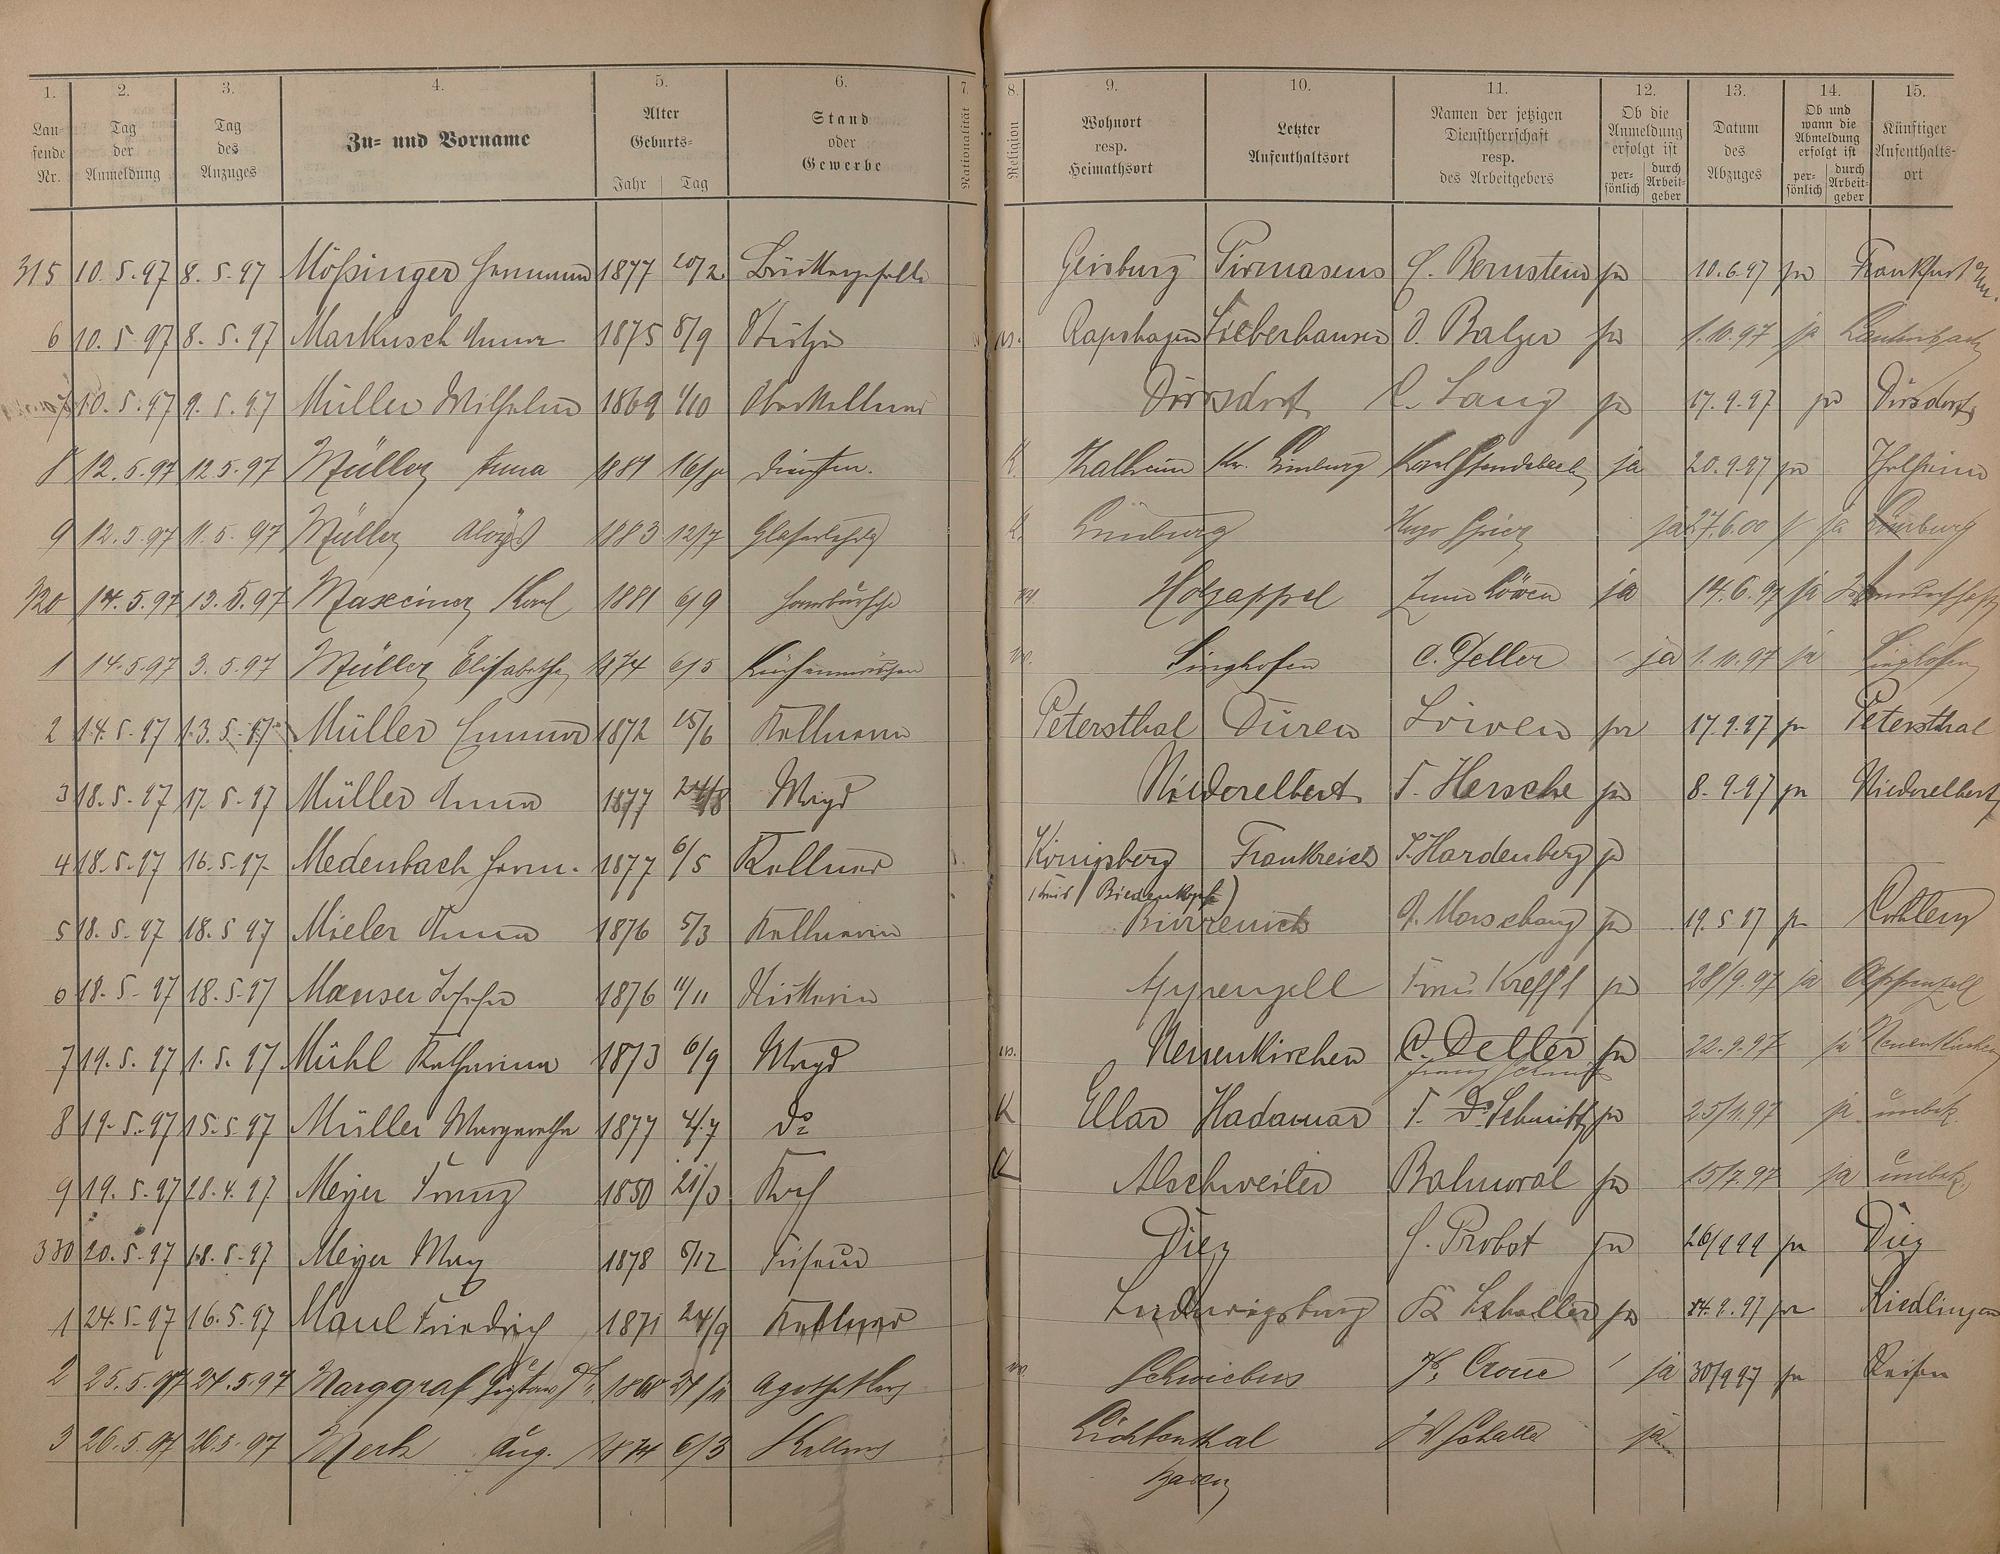 1. 2. 3. 4. 5. 6. 7. 8. 9. 10. 11. 12. 13. 14. 15.
Lau- fende Nr. Tag der Anmeldung Tag des Anzuges Zu- und Vorname Alter Geburts- Jahr Tag Stand oder Gewerbe Nationalität Religion Wohnort resp. Heimathsort Letzter Aufenthaltsort Namen der jetzigen Dienstherrschaft resp. des Arbeitgebers Ob die Anmeldung erfolgt ist per- sönlich durch Arbeit- geber Datum des Abzuges Ob und wann die Abmeldung erfolgt ist per- sönlich durch Arbeit- geber Künftiger Aufenthalts- ort
315 10.5.97 8.5.97 Mößinger Hermann 1877 20/2 Geisburg Pirmasens C. Bernstein ja 10.6.97 ja Frankfurt a/M.
6 10.5.97 8.5.97 Markusch Anna 1875 8/9 Stütze Rapshagen Lieberhausen O. Balzer ja 1.10.97 ja
7 10.5.97 9.5.97 Müller Wilhelm 1869 1/10 Oberkellner Dörsdorf C. Lang ja 17.9.97 ja Dörsdorf
8 12.5.97 12.5.97 Müller Anna 1881 Dienstm. K. Thalheim Kr. Limburg Karl ja 20.9.97 ja Thalheim
9 12.5.97 11.5.97 Müller Aloys 1883 12/7 Glaserlehrlg K. Limburg Hugo ja 27.6.00 ja Limburg
320 14.5.97 13.5.97 Maxeiner Karl 1881 6/9 Hausbursche Holzappel Zum Löwen ja 14.6.97 ja
1 14.5.97 3.5.97 Müller Elisabethe 1874 6/5 Küchenmädchen Singhofen C. Deller ja 1.10.97 ja Singhofen
2 14.5.97 13.5.97 Müller Emma 1872 15/6 Kellnerin Petersthal Düren Löwen ja 17.9.97 ja Petersthal
3 18.5.97 17.5.97 Müller Anna 1877 24/8 Magd Niederelbert F. Hersche ja 8.9.97 ja Niederelbert
4 18.5.97 16.5.97 Medenbach Herm. 1877 6/5 Kellner Königsberg Frankreich F. Hardenberg ja
(Kreis Biedenkopf)
5 18.5.97 18.5.97 Mieler Anna 1876 5/3 Kellnerin Birrenich J. Morschang ja 19.5.97 ja Coblenz
6 18.5.97 18.5.97 Manser Josefa 1876 11/11 Stickerin Appenzell Frau Krefft ja 28/9.97 ja Appenzell
7 19.5.97 1.5.97 Mühl Katharina 1873 6/9 Magd Neuenkirchen C. Deller ja 22.9.97 ja Neuenkirchen
8 19.5.97 15.5.97 Müller Margarethe 1877 4/7 do K Ellar Hadamar F. Dr. Schmitt ja 25/11.97 ja unbek.
9 19.5.97 28.4.97 Meyer Franz 1850 21/3 Koch K Alschweiler Balmoral ja 15/7.97 ja unbek.
330 20.5.97 18.5.97 Meyer Max 1878 5/12 Friseur Diez C. Probst ja 26/9 99 ja Diez
1 24.5.97 16.5.97 Maul Friedrich 1871 24/9 Kellner Ludwigsburg Schaller ja 14.9.97 ja Riedlingen
2 25.5.97 24.5.97 Marggraf Gustav 1868 21/11 Apotheker Schwiebus Crone ja 30/9 97 ja Reisen
3 26.5.97 26.5.97 Merk Aug. 1874 6/3 Kellner Lichtenthal W Schaller ja
Baden